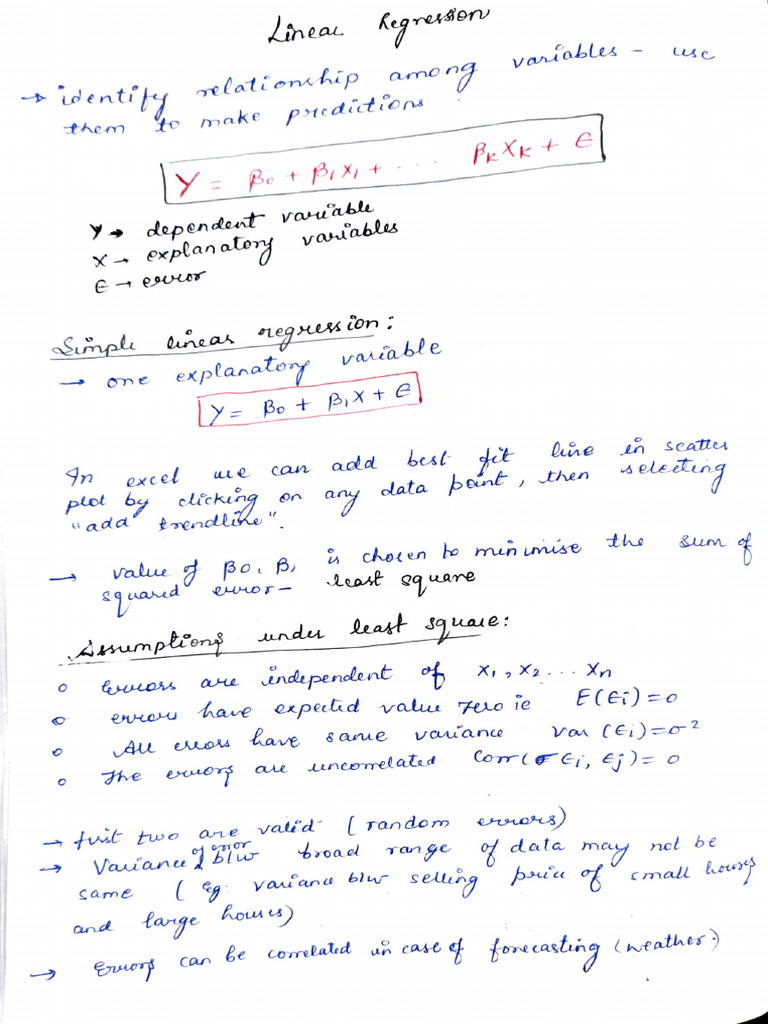 Linear Regression
→ identify relationship among variables - use
them to make predictions.
Y = β0 + β1X1 + ... βKXK + ϵ
Y → dependent variable
X → explanatory variables
ϵ → error
Simple linear regression:
→ one explanatory variable
Y = β0 + β1X + ϵ
In excel we can add best fit line in scatter
plot by clicking on any data point, then selecting
"add trendline".
→ value of β0, β1 is chosen to minimise the sum of
squared error - least square
Assumptions under least square:
o Errors are independent of X1, X2 ... Xn
o errors have expected value zero ie E(ϵi) = 0
o All errors have same variance var (ϵi) = σ²
o The errors are uncorrelated Corr(ϵi, ϵj) = 0
→ first two are valid (random errors)
→ Variance of error b/w broad range of data may not be
same (Eg: variance b/w selling price of small houses
and large houses)
→ Errors can be correlated in case of forecasting (weather.)